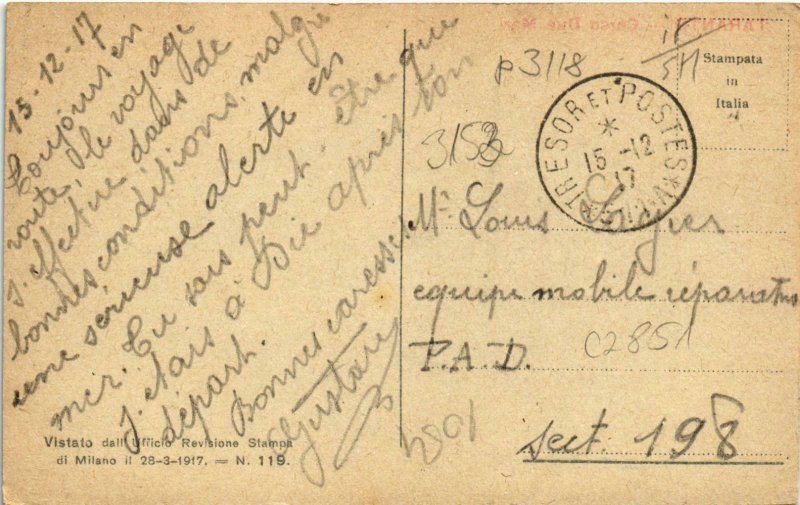 15-12-17
Toujours en
route, le voyage
s'effectue dans de
bonnes conditions, malgré
une sérieuse alerte en
mer. Tu sais peut-être que
j'étais à Die après ton
départ.
Bonnes caresses.
Gustave
Vistato dall' Ufficio Revisione Stampa
di Milano il 28-3-1917. — N. 119.
TARANTO - Corso Due Mari
Stampata
in
Italia
P3118
3158
TRESOR ET POSTES
15 -12
17
Mr Louis
équipe mobile réparations
P.A.D.
C2851
sect. 198